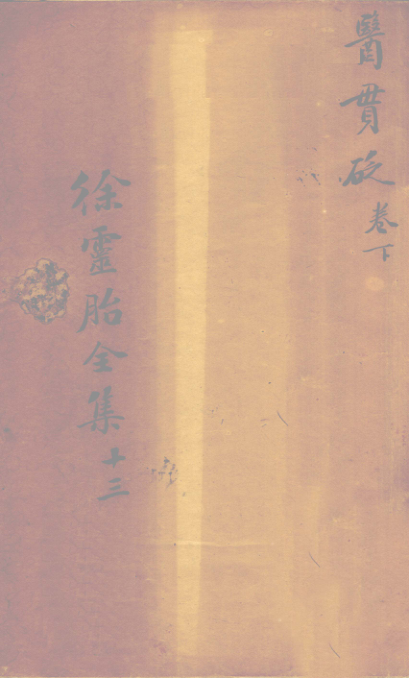 醫貫砭 卷下
徐靈胎全集 十三